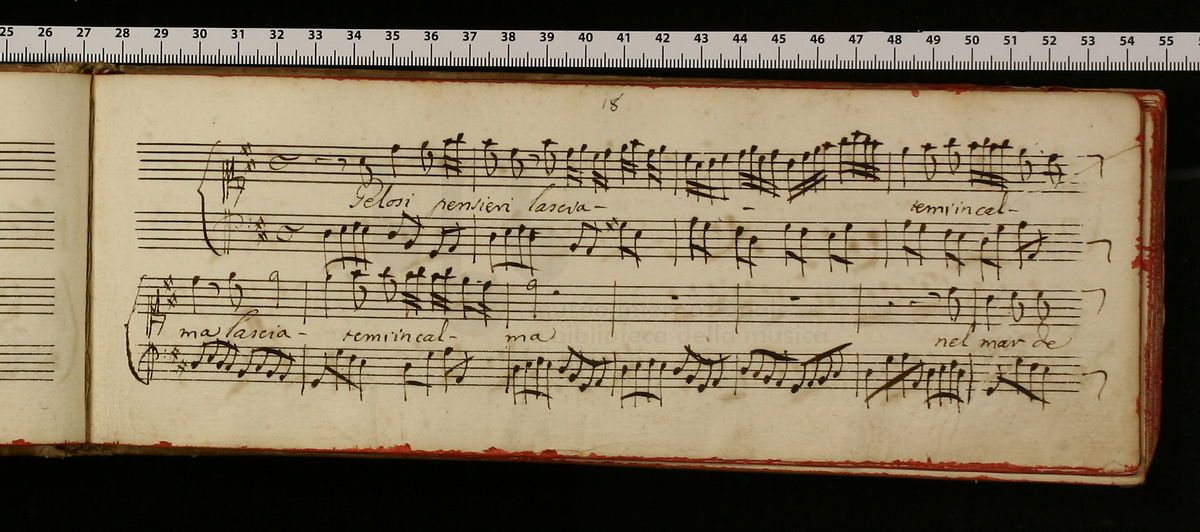 25 26 27 28 29 30 31 32 33 34 35 36 37 38 39 40 41 42 43 44 45 46 47 48 49 50 51 52 53 54 55
18
Gelosi pensieri lascia - - temi in cal-
ma lascia - temi in cal- ma nel mar de
biblioteca della musica